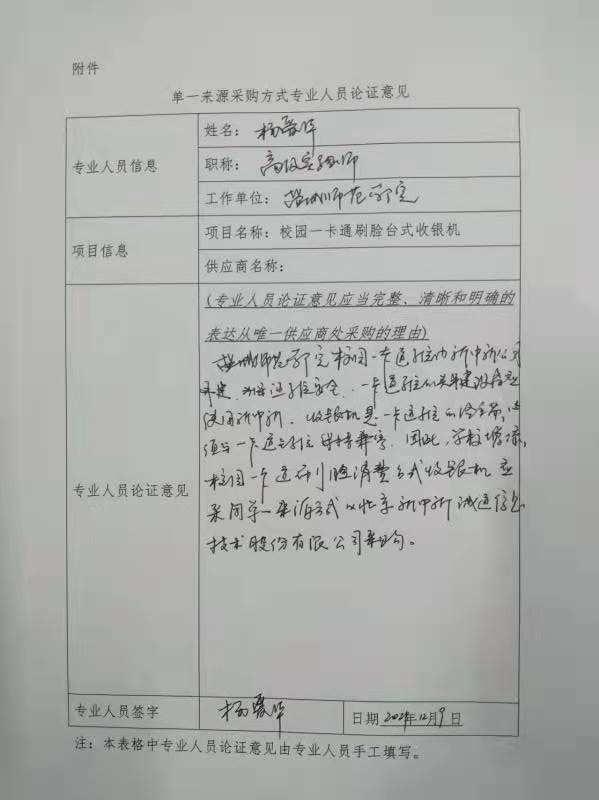 附件
单一来源采购方式专业人员论证意见
专业人员信息
姓名：杨
职称：高级实验师
工作单位：盐城师范学院
项目信息
项目名称：校园一卡通刷脸台式收银机
供应商名称：
专业人员论证意见
(专业人员论证意见应当完整、清晰和明确的
表达从唯一供应商处采购的理由)
盐城师范学院校园一卡通系统由新中新公司
承建，为保证系统安全，一卡通系统的关键建设应
使用新中新，收银机是一卡通系统的，必
须与一卡通系统保持兼容，因此，学校增添
校园一卡通刷脸消费台式收银机应
采用单一来源方式从北京新中新诚通信息
技术股份有限公司采购。
专业人员签字
杨
日期 12月9日
注：本表格中专业人员论证意见由专业人员手工填写。